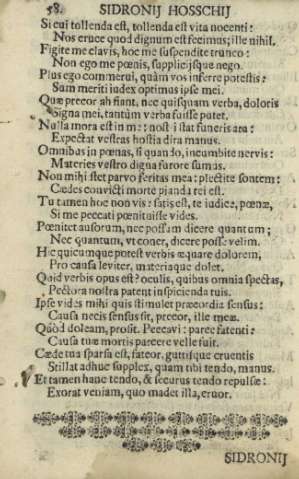 58. SIDRONIJ HOSSCHIJ
Si cui tollenda est, tollenda est vita nocenti:
Nos cruce quod dignum est fecimus; ille nihil.
Figite me clavis, hoc me suspendite trunco:
Non ego me pœnis, suppliciisque nego.
Plus ego commerui, quàm vos inferre potestis:
Sum meriti iudex optimus ipse mei.
Quæ precor ah fiant, nec quisquam verba, doloris
Signa mei, tantùm verba fuisse putet.
Nulla mora est in me: nost i stat funeris ara:
Expectat vestras hostia dira manus.
Omnibus in pœnas, si quando, incumbite nervis:
Materies vestro digna furore sumus.
Non mihi stet parvo feritas mea: plectite sontem:
Cædes convicti morte pianda rei est.
Tu tamen hoc non vis: satis est, te iudice, pœnæ,
Si me peccati pœnituisse vides.
Pœnitet ausorum, nec possum dicere quantum;
Nec quantum, vt coner, dicere posse velim.
Hic quicumque potest verbis æquare dolorem,
Pro causa leviter, materiaque dolet.
Quid verbis opus est? oculis, quibus omnia spectas,
Pectora nostra patent inspicienda tuis.
Ipse vides mihi quis sti mulet præcordia sensus:
Causa necis sensus sit, precor, ille meæ.
Quòd doleam, prosit. Peccavi: parce fatenti:
Causa tuæ mortis parcere velle fuit.
Cæde tua sparsa est, fateor, guttisque cruentis
Stillat adhuc supplex, quam tibi tendo, manus.
Et tamen hanc tendo, & securus tendo repulsæ:
Exorat veniam, quo madet illa, cruor.
SIDRONIJ